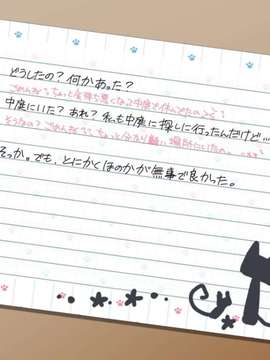 どうしたの？何かあった？
ごめんなさい。ちょっと気持ち悪くなって中庭で休んでたの
中庭にいた？あれ？私も中庭に探しに行ったんだけど…
そうなの？ごめんなさい。ちょっと分かり難い場所にいたの
そっか。でも、とにかくほのかが無事で良かった。